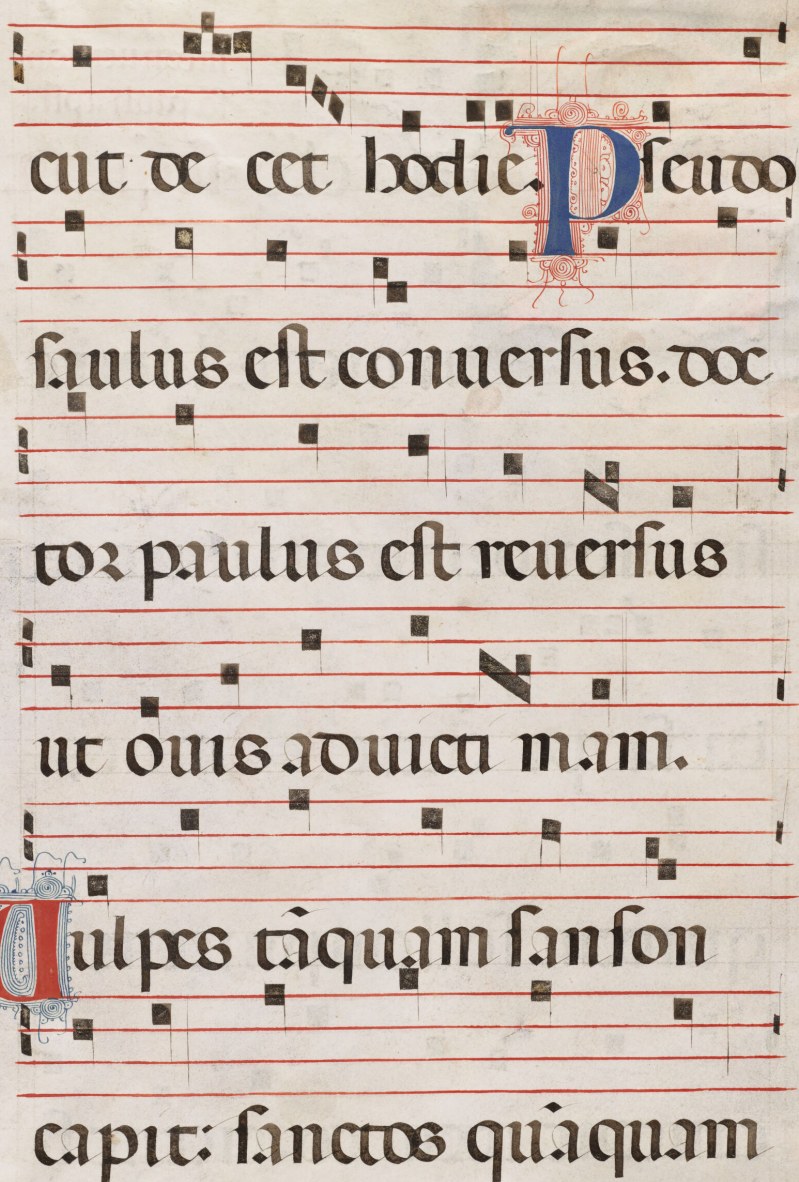 cut de cet hodie. Pseudo
saulus est conuersus. doc
tor paulus est reuersus
ut ouis ad uicti mam.
Uulpes tāquam sanson
capit: sanctos quāquam